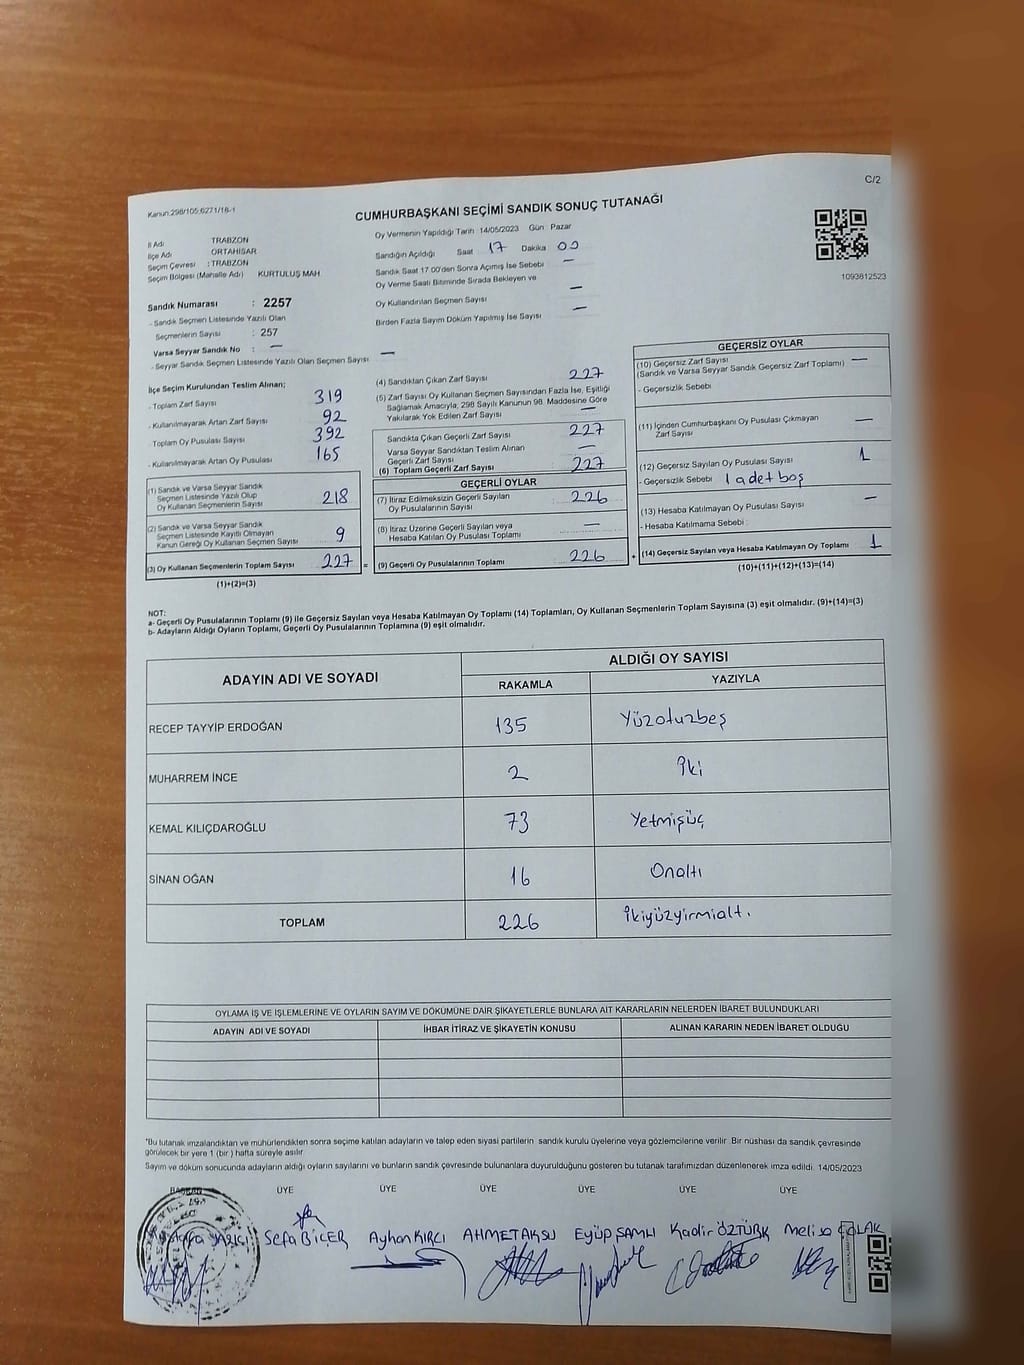 C/2
Kanun:298/105;6271/18-1
CUMHURBAŞKANI SEÇİMİ SANDIK SONUÇ TUTANAĞI
İl Adı TRABZON
İlçe Adı ORTAHİSAR
Seçim Çevresi : TRABZON
Seçim Bölgesi (Mahalle Adı) KURTULUŞ MAH
Sandık Numarası : 2257
- Sandık Seçmen Listesinde Yazılı Olan
Seçmenlerin Sayısı : 257
Varsa Seyyar Sandık No : —
- Seyyar Sandık Seçmen Listesinde Yazılı Olan Seçmen Sayısı —
Oy Vermenin Yapıldığı Tarih 14/05/2023 Gün Pazar
Sandığın Açıldığı Saat 17 Dakika 00
Sandık Saat 17.00'den Sonra Açımış İse Sebebi —
Oy Verme Saati Bitiminde Sırada Bekleyen ve
Oy Kullandırılan Seçmen Sayısı —
Birden Fazla Sayım Döküm Yapılmış İse Sayısı —
1093812523
İlçe Seçim Kurulundan Teslim Alınan;
- Toplam Zarf Sayısı 319
- Kullanılmayarak Artan Zarf Sayısı 92
- Toplam Oy Pusulası Sayısı 392
- Kullanılmayarak Artan Oy Pusulası 165
(1) Sandık ve Varsa Seyyar Sandık
Seçmen Listesinde Yazılı Olup
Oy Kullanan Seçmenlerin Sayısı 218
(2) Sandık ve Varsa Seyyar Sandık
Seçmen Listesinde Kayıtlı Olmayan
Kanun Gereği Oy Kullanan Seçmen Sayısı 9
(3) Oy Kullanan Seçmenlerin Toplam Sayısı 227 =
(1)+(2)=(3)
(4) Sandıktan Çıkan Zarf Sayısı 227
(5) Zarf Sayısı Oy Kullanan Seçmen Sayısından Fazla İse, Eşitliği
Sağlamak Amacıyla, 298 Sayılı Kanunun 98. Maddesine Göre
Yakılarak Yok Edilen Zarf Sayısı —
Sandıkta Çıkan Geçerli Zarf Sayısı 227
Varsa Seyyar Sandıktan Teslim Alınan
Geçerli Zarf Sayısı —
(6) Toplam Geçerli Zarf Sayısı 227
GEÇERLİ OYLAR
(7) İtiraz Edilmeksizin Geçerli Sayılan
Oy Pusulalarının Sayısı 226
(8) İtiraz Üzerine Geçerli Sayılan veya
Hesaba Katılan Oy Pusulası Toplamı —
(9) Geçerli Oy Pusulalarının Toplamı 226 +
GEÇERSİZ OYLAR
(10) Geçersiz Zarf Sayısı —
(Sandık ve Varsa Seyyar Sandık Geçersiz Zarf Toplamı)
- Geçersizlik Sebebi
(11) İçinden Cumhurbaşkanı Oy Pusulası Çıkmayan
Zarf Sayısı —
(12) Geçersiz Sayılan Oy Pusulası Sayısı 1
- Geçersizlik Sebebi 1 adet boş
(13) Hesaba Katılmayan Oy Pusulası Sayısı —
- Hesaba Katılmama Sebebi :
(14) Geçersiz Sayılan veya Hesaba Katılmayan Oy Toplamı 1
(10)+(11)+(12)+(13)=(14)
NOT:
a- Geçerli Oy Pusulalarının Toplamı (9) ile Geçersiz Sayılan veya Hesaba Katılmayan Oy Toplamı (14) Toplamları, Oy Kullanan Seçmenlerin Toplam Sayısına (3) eşit olmalıdır. (9)+(14)=(3)
b- Adayların Aldığı Oyların Toplamı, Geçerli Oy Pusulalarının Toplamına (9) eşit olmalıdır.
ADAYIN ADI VE SOYADI ALDIĞI OY SAYISI
RAKAMLA YAZIYLA
RECEP TAYYİP ERDOĞAN 135 Yüzotuzbeş
MUHARREM İNCE 2 İki
KEMAL KILIÇDAROĞLU 73 Yetmişüç
SİNAN OĞAN 16 Onaltı
TOPLAM 226 İkiyüzyirmialt.
OYLAMA İŞ VE İŞLEMLERİNE VE OYLARIN SAYIM VE DÖKÜMÜNE DAİR ŞİKAYETLERLE BUNLARA AİT KARARLARIN NELERDEN İBARET BULUNDUKLARI
ADAYIN ADI VE SOYADI İHBAR İTİRAZ VE ŞİKAYETİN KONUSU ALINAN KARARIN NEDEN İBARET OLDUĞU
"Bu tutanak imzalandıktan ve mühürlendikten sonra seçime katılan adayların ve talep eden siyasi partilerin sandık kurulu üyelerine veya gözlemcilerine verilir. Bir nüshası da sandık çevresinde
görülecek bir yere 1 (bir ) hafta süreyle asılır.
Sayım ve döküm sonucunda adayların aldığı oyların sayılarını ve bunların sandık çevresinde bulunanlara duyurulduğunu gösteren bu tutanak tarafımızdan düzenlenerek imza edildi. 14/05/2023
BAŞKAN ÜYE ÜYE ÜYE ÜYE ÜYE ÜYE
YAZICI Sefa BİÇER Ayhan KIRCI AHMET AKSU Eyüp ŞAMLI Kadir ÖZTÜRK Melisa ÇOLAK